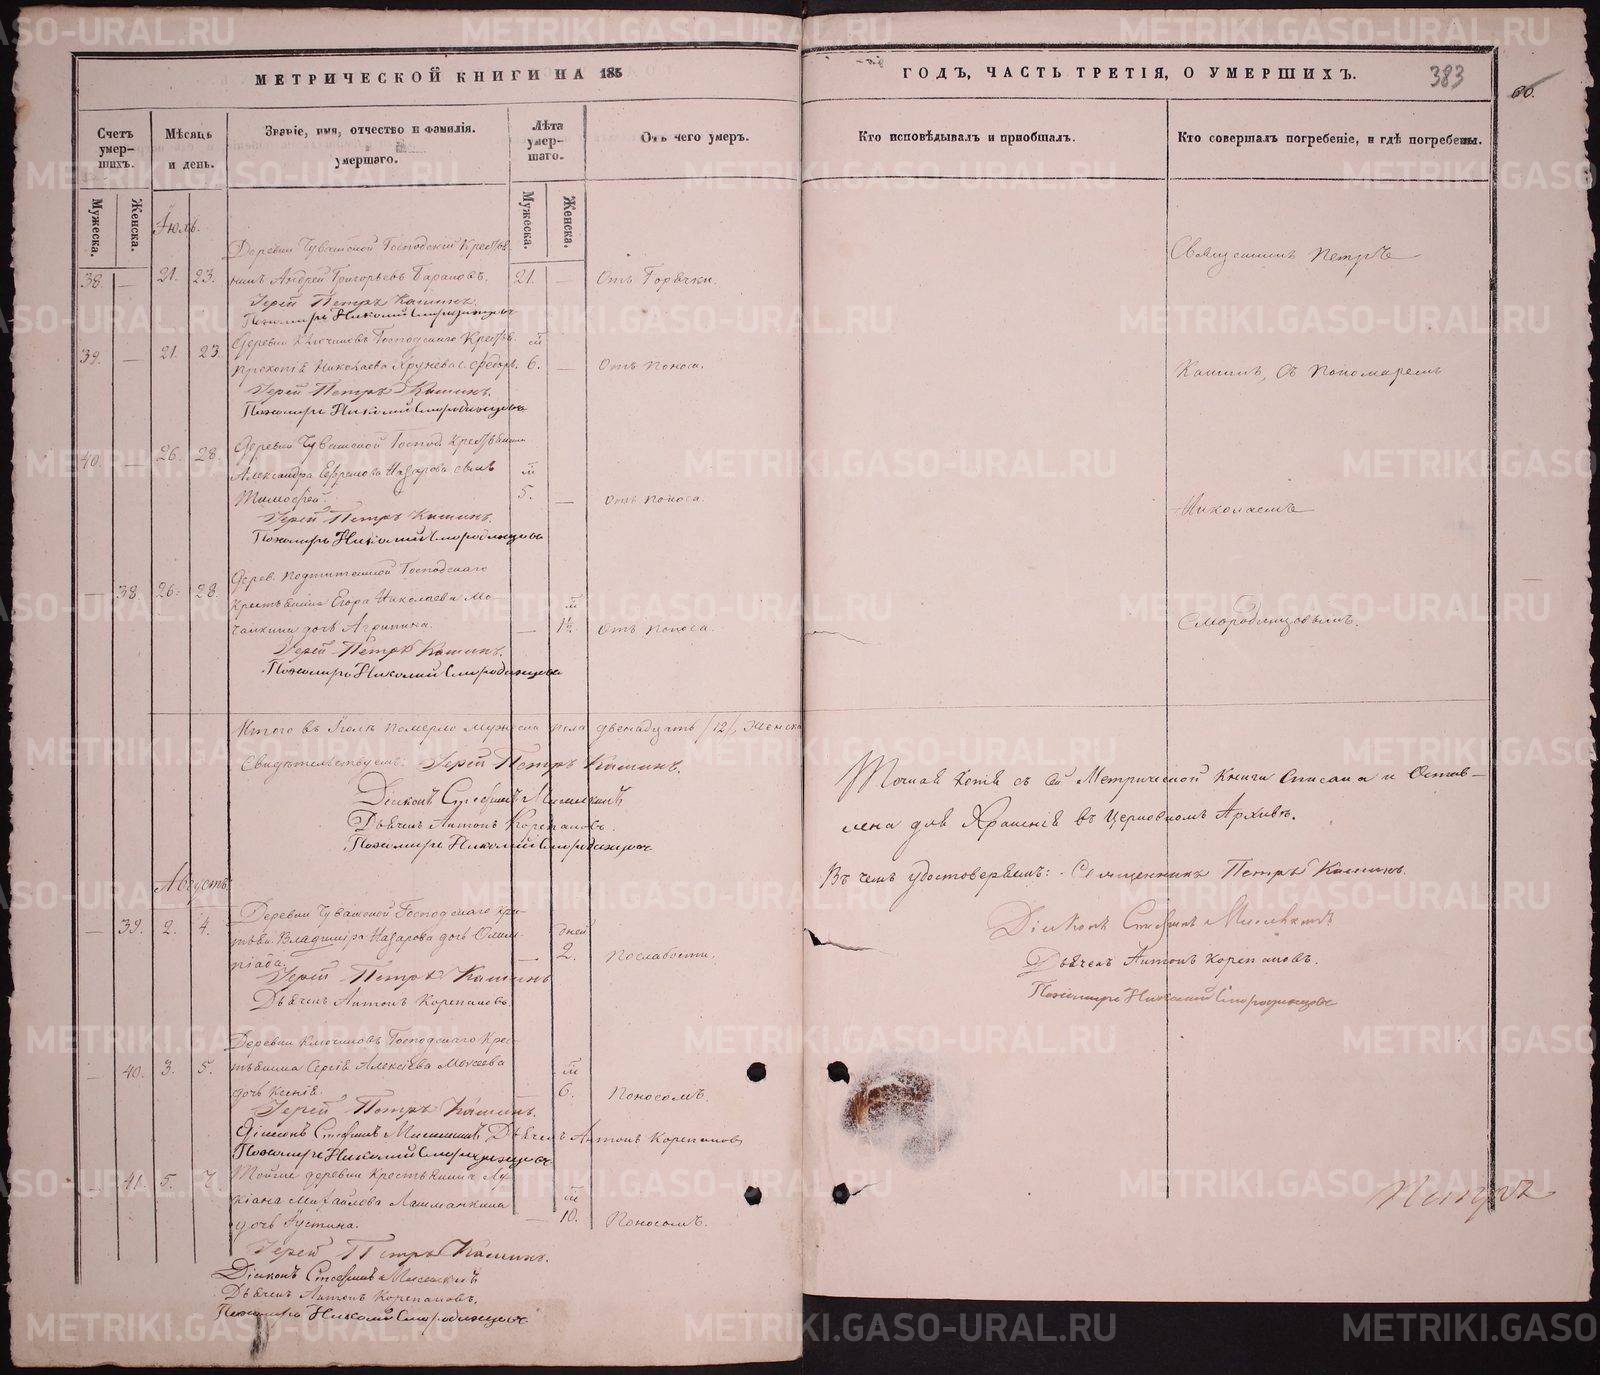 МЕТРИЧЕСКОЙ КНИГИ НА 185
ГОДЪ, ЧАСТЬ ТРЕТІЯ, О УМЕРШИХЪ.
383
66.
Счетъ умер-
шихъ.
Мѣсяцъ
и день.
Званіе, имя, отчество и фамилія.
умершаго.
Лѣта
умер-
шаго.
Отъ чего умеръ.
Кто исповѣдывалъ и пріобщалъ.
Кто совершалъ погребеніе, и гдѣ погребены.
Мужеска.
Женска.
Мужеска.
Женска.
Іюль.
Деревни Чувашской Господскій Крестья
38. — 21. 23. нинъ Андрей Григорьевъ Барановъ. 21. — Отъ Горячки.
Священникъ Петръ
Іерей Петръ Кашинъ.
Пономарь Николай Смородинцовъ
Деревни Ключиковъ Господскаго Крестьян. м
39. — 21. 23. Николаева 6. — Отъ Поноса.
Кашинъ, съ Пономаремъ
Іерей Петръ Кашинъ.
Пономарь Николай Смородинцовъ
Деревни Чувашской Господ. Крестьянина
40. — 26. 28. Александра Ефремова Назарова сынъ м
Тимофей. 5. — Отъ поноса.
Николаемъ
Іерей Петръ Кашинъ.
Пономарь Николай Смородинцовъ
Дерев. Господскаго
— 38. 26. 28. Крестьянина Егора Николаева Мо- м
чалкина дочь Агрипина. — 1½ Отъ поноса.
Смородинцовымъ.
Іерей Петръ Кашинъ.
Пономарь Николай Смородинцовъ
Итого въ Іюлѣ померло мужеска пола двенадцать /12/, Женска
Свидѣтельствуемъ: Іерей Петръ Кашинъ.
Діаконъ Стефанъ
Дьячекъ Антонъ Корепановъ.
Пономарь Николай Смородинцовъ
Точная Копія съ сей Метрической Книги Списана и Остав-
лена для Храненія въ Церковномъ Архивѣ.
Въ чемъ удостоверяемъ: Священникъ Петръ Кашинъ.
Діаконъ Стефанъ
Дьячекъ Антонъ Корепановъ.
Пономарь Николай Смородинцовъ
Августъ
Деревни Чувашской Господскаго Кре-
— 39. 2. 4. стьян. Владиміра Назарова дочь Олим- дней
піада. — 2. Послабости.
Іерей Петръ Кашинъ
Дьячекъ Антонъ Корепановъ.
Деревни Ключиковъ Господскаго Крес-
— 40. 3. 5. тьянина Сергія Алексѣева Мокеева м
дочь Ксенія. 6. Поносомъ.
Іерей Петръ Кашинъ.
Діаконъ Стефанъ Дьячекъ Антонъ Корепановъ
Пономарь Николай Смородинцовъ
— 41. 5. 7. Тойже деревни Крестьянина Лу-
кіана Михайлова Лашманкина м
дочь Іустина. — 10. Поносомъ.
Петръ
Іерей Петръ Кашинъ.
Діаконъ Стефанъ
Дьячекъ Антонъ Корепановъ,
Пономарь Николай Смородинцовъ
METRIKI.GASO-URAL.RU